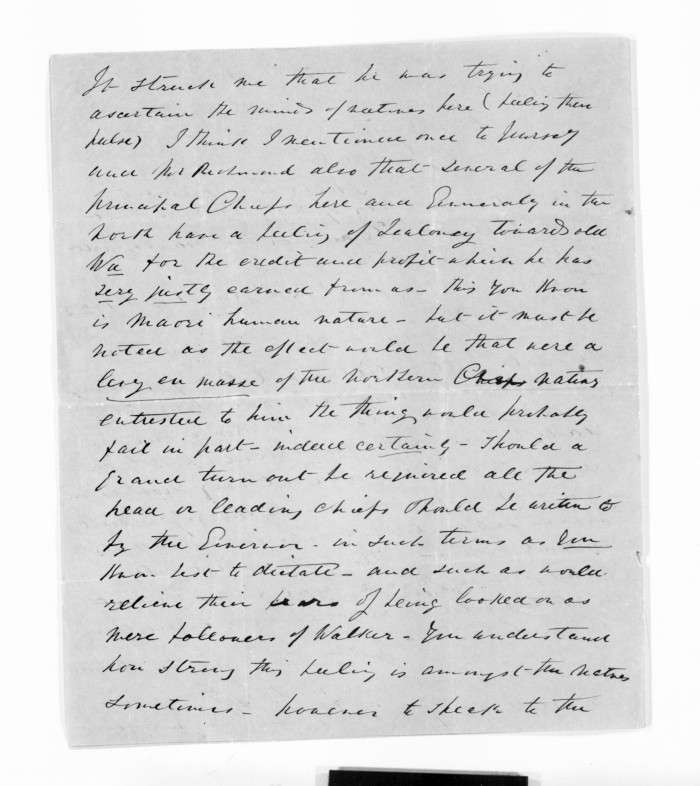 It struck me that he was trying to
ascertain the minds of natives here (feeling their
pulse) I think I mentioned once to
and Mr Richmond also that several of the
principal Chiefs here and Generally in the
North have a feeling of Jealousy towards old
Wa for the credit and profit which he has
very justly earned from us - this You Know
is Maori human nature - but it must be
noted as the effect would be that were a
levy en masse of the Northern Chiefs natives
entrusted to him the thing would probably
fail in part - indeed certainly - Should a
grand turn out be required all the
head or leading chiefs should be written to
by the Governor - in such terms as You
Know best to dictate - and such as would
relieve their fears of being looked on as
mere followers of Walker - You understand
how strong this feeling is amongst the natives
sometimes - however to speak to the